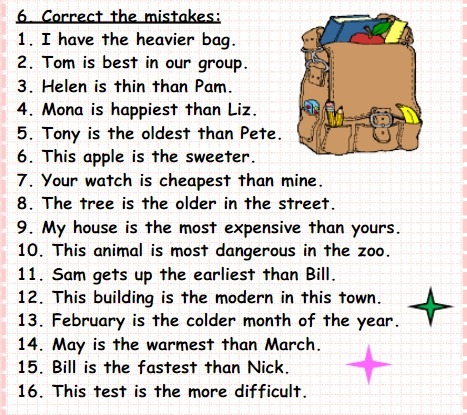 6. Correct the mistakes:
1. I have the heavier bag.
2. Tom is best in our group.
3. Helen is thin than Pam.
4. Mona is happiest than Liz.
5. Tony is the oldest than Pete.
6. This apple is the sweeter.
7. Your watch is cheapest than mine.
8. The tree is the older in the street.
9. My house is the most expensive than yours.
10. This animal is most dangerous in the zoo.
11. Sam gets up the earliest than Bill.
12. This building is the modern in this town.
13. February is the colder month of the year.
14. May is the warmest than March.
15. Bill is the fastest than Nick.
16. This test is the more difficult.